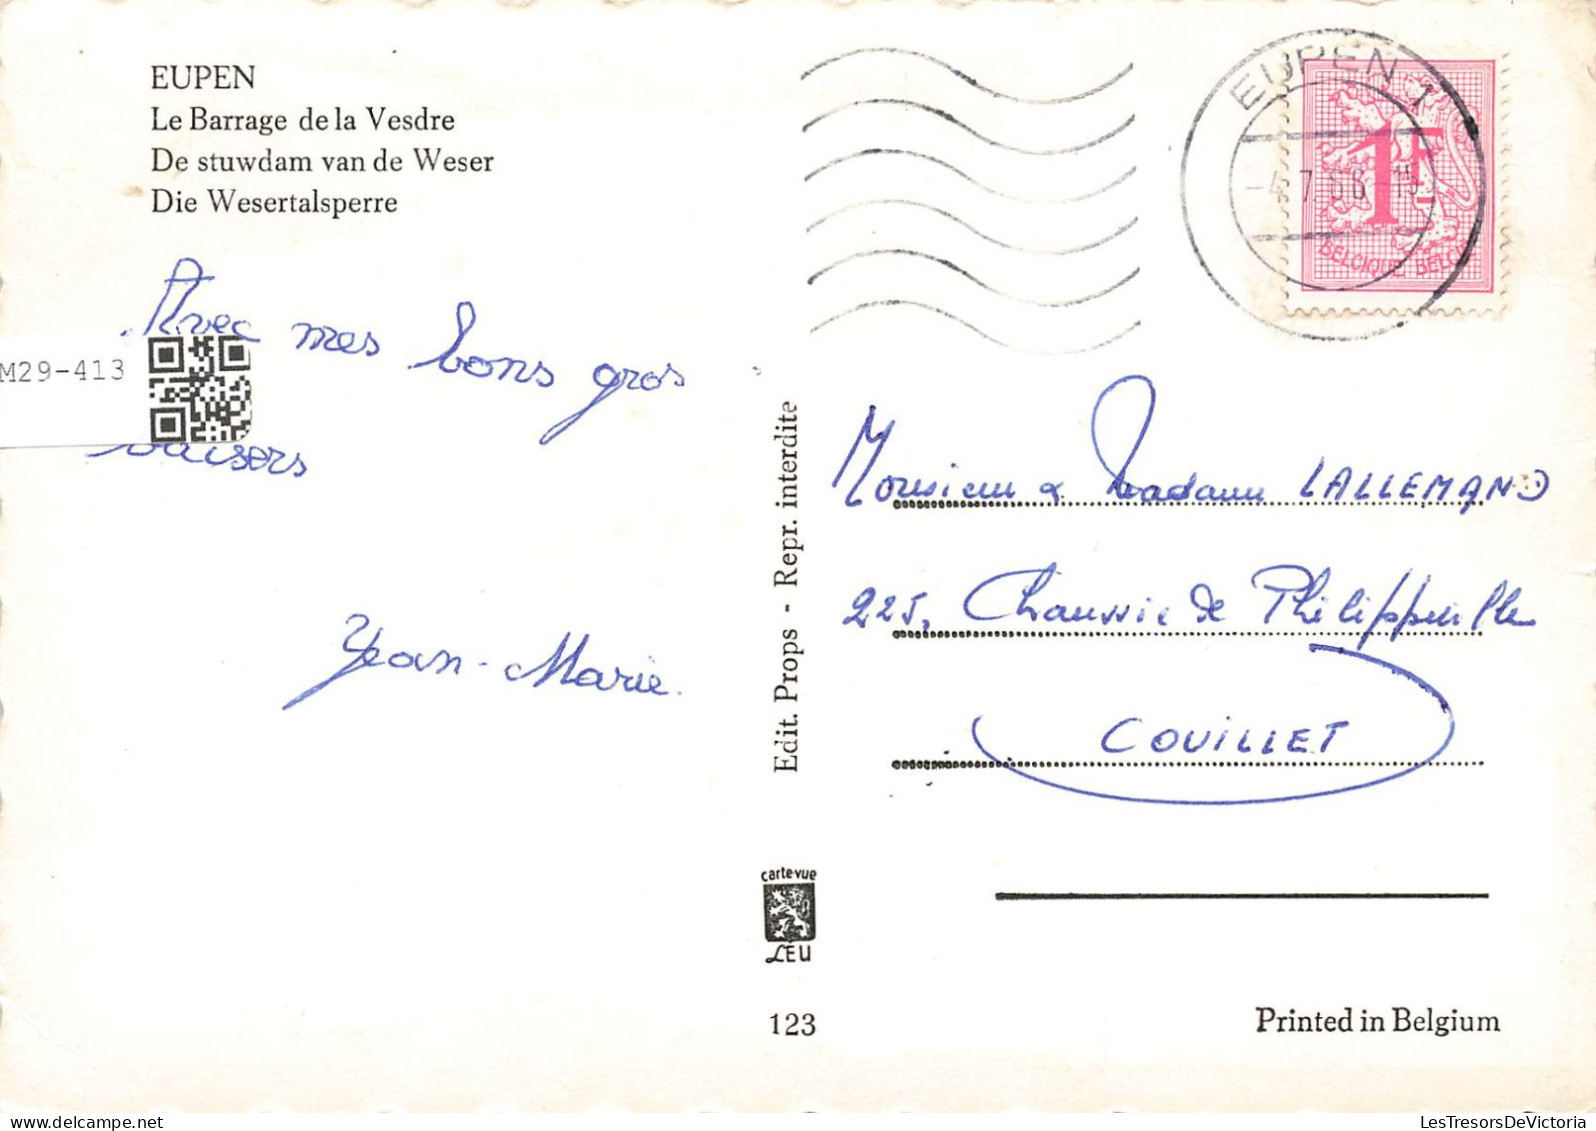 EUPEN
Le Barrage de la Vesdre
De stuwdam van de Weser
Die Wesertalsperre
Avec mes bons gros
baisers
Jean-Marie.
M29-413
EUPEN 1
-4 7 66 -15
1F
BELGIQUE BELGI
Edit. Props - Repr. interdite
Monsieur & Madame LALLEMAND
225, Chaussée de Philippeville
COUILLET
cartevue
LEU
123
Printed in Belgium
https://www.delcampe.net
LesTresorsDeVictoria